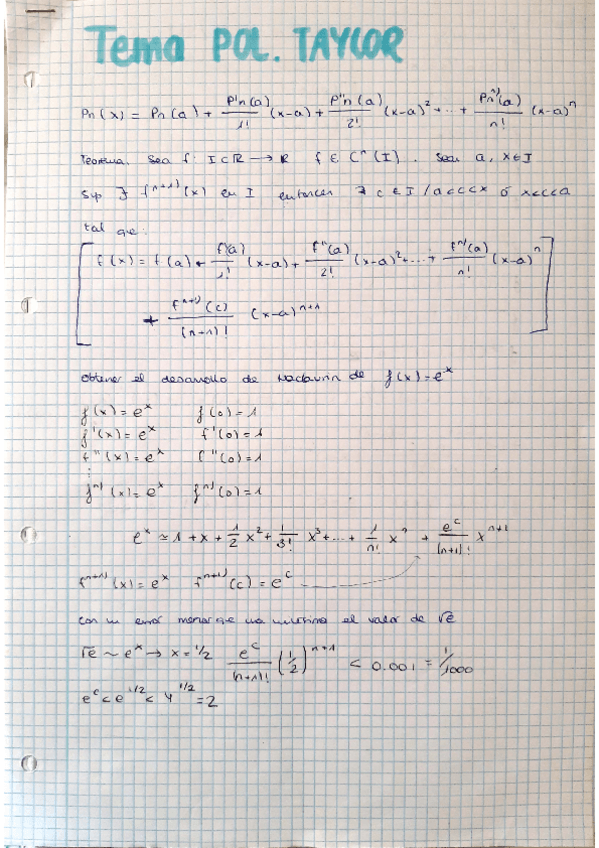 Tema POL. TAYLOR
Pn(x) = Pn(a) + P'n(a)/1! (x-a) + P''n(a)/2! (x-a)² + ... + Pn^n)(a)/n! (x-a)^n
Teorema. Sea f: I⊂ℝ → ℝ f ∈ C^n(I). Sean a, x∈I
Sup ∃ f^n+1)(x) en I entonces ∃ c ∈ I / a<c<x ó x<c<a
tal que:
f(x) = f(a) + f'(a)/1! (x-a) + f''(a)/2! (x-a)² + ... + f^n)(a)/n! (x-a)^n
+ f^n+1)(c)/(n+1)! (x-a)^n+1
Obtener el desarrollo de Maclaurin de f(x) = e^x
f(x) = e^x f(0) = 1
f'(x) = e^x f'(0) = 1
f''(x) = e^x f''(0) = 1
⋮
f^n)(x) = e^x f^n)(0) = 1
e^x ≃ 1 + x + 1/2 x² + 1/3! x³ + ... + 1/n! x^n + e^c/(n+1)! x^n+1
f^n+1)(x) = e^x f^n+1)(c) = e^c
con un error menor que una milésima el valor de √e
√e ~ e^x → x = 1/2 e^c/(n+1)! (1/2)^n+1 < 0.001 = 1/1000
e^c < e^1/2 < 4^1/2 = 2